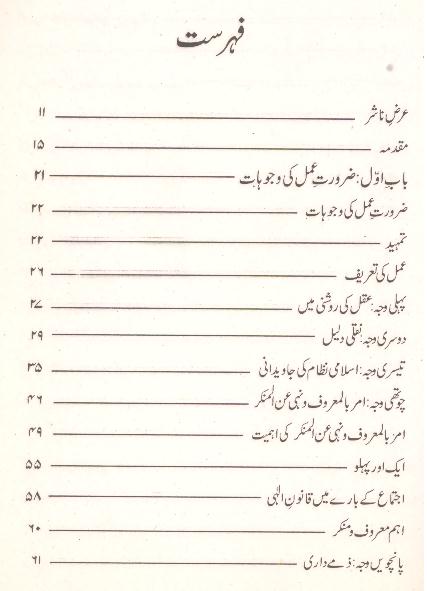 فہرست
عرضِ ناشر ۱۱
مقدمہ ۱۵
باب اوّل: ضرورتِ عمل کی وجوہات ۲۱
ضرورتِ عمل کی وجوہات ۲۲
تمہید ۲۲
عمل کی تعریف ۲۶
پہلی وجہ: عقل کی روشنی میں ۲۷
دوسری وجہ: نقلی دلیل ۲۹
تیسری وجہ: اسلامی نظام کی جاویدانی ۳۵
چوتھی وجہ: امر بالمعروف و نہی عن المنکر ۴۶
امر بالمعروف و نہی عن المنکر کی اہمیت ۴۹
ایک اور پہلو ۵۵
اجتماع کے بارے میں قانونِ الٰہی ۵۸
اہم معروف و منکر ۶۰
پانچویں وجہ: ذمے داری ۶۱